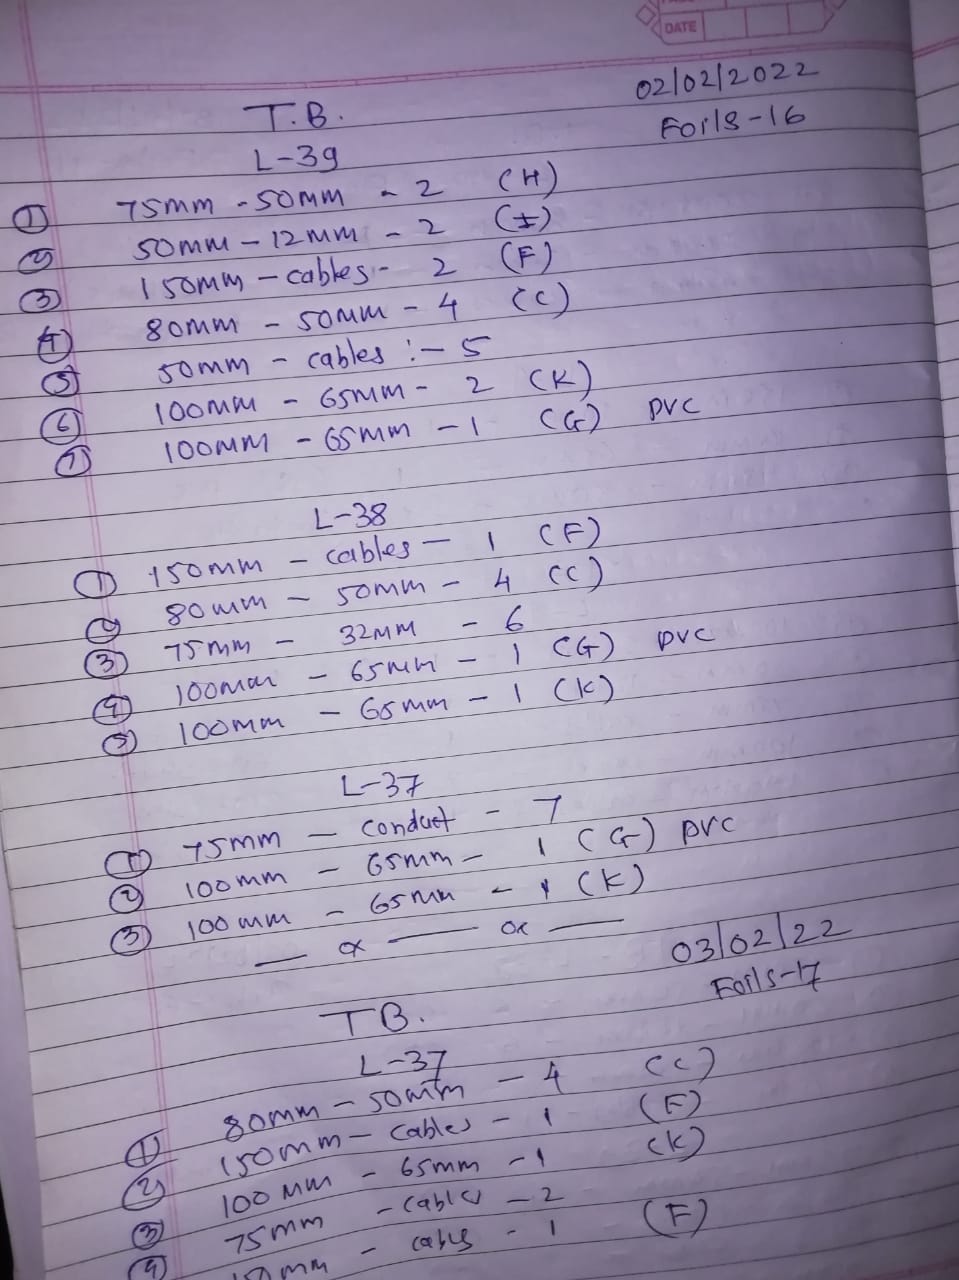 DATE
02/02/2022
T.B.
Foils-16
L-39
① 75mm - 50mm - 2 (H)
② 50mm - 12mm - 2 (I)
③ 150mm - cables - 2 (F)
④ 80mm - 50mm - 4 (C)
⑤ 50mm - cables :- 5
⑥ 100mm - 65mm - 2 (K)
⑦ 100mm - 65mm - 1 (G) PVC
L-38
① 150mm - cables - 1 (F)
② 80mm - 50mm - 4 (C)
③ 75mm - 32mm - 6
④ 100mm - 65mm - 1 (G) PVC
⑤ 100mm - 65mm - 1 (K)
L-37
① 75mm - conduct - 7
② 100mm - 65mm - 1 (G) PVC
③ 100mm - 65mm - 1 (K)
03/02/22
Foils-17
TB.
L-37
① 80mm - 50mm - 4 (C)
② 150mm - cables - 1 (F)
③ 100mm - 65mm - 1 (K)
④ 75mm - cables - 2
cables - 1 (F)